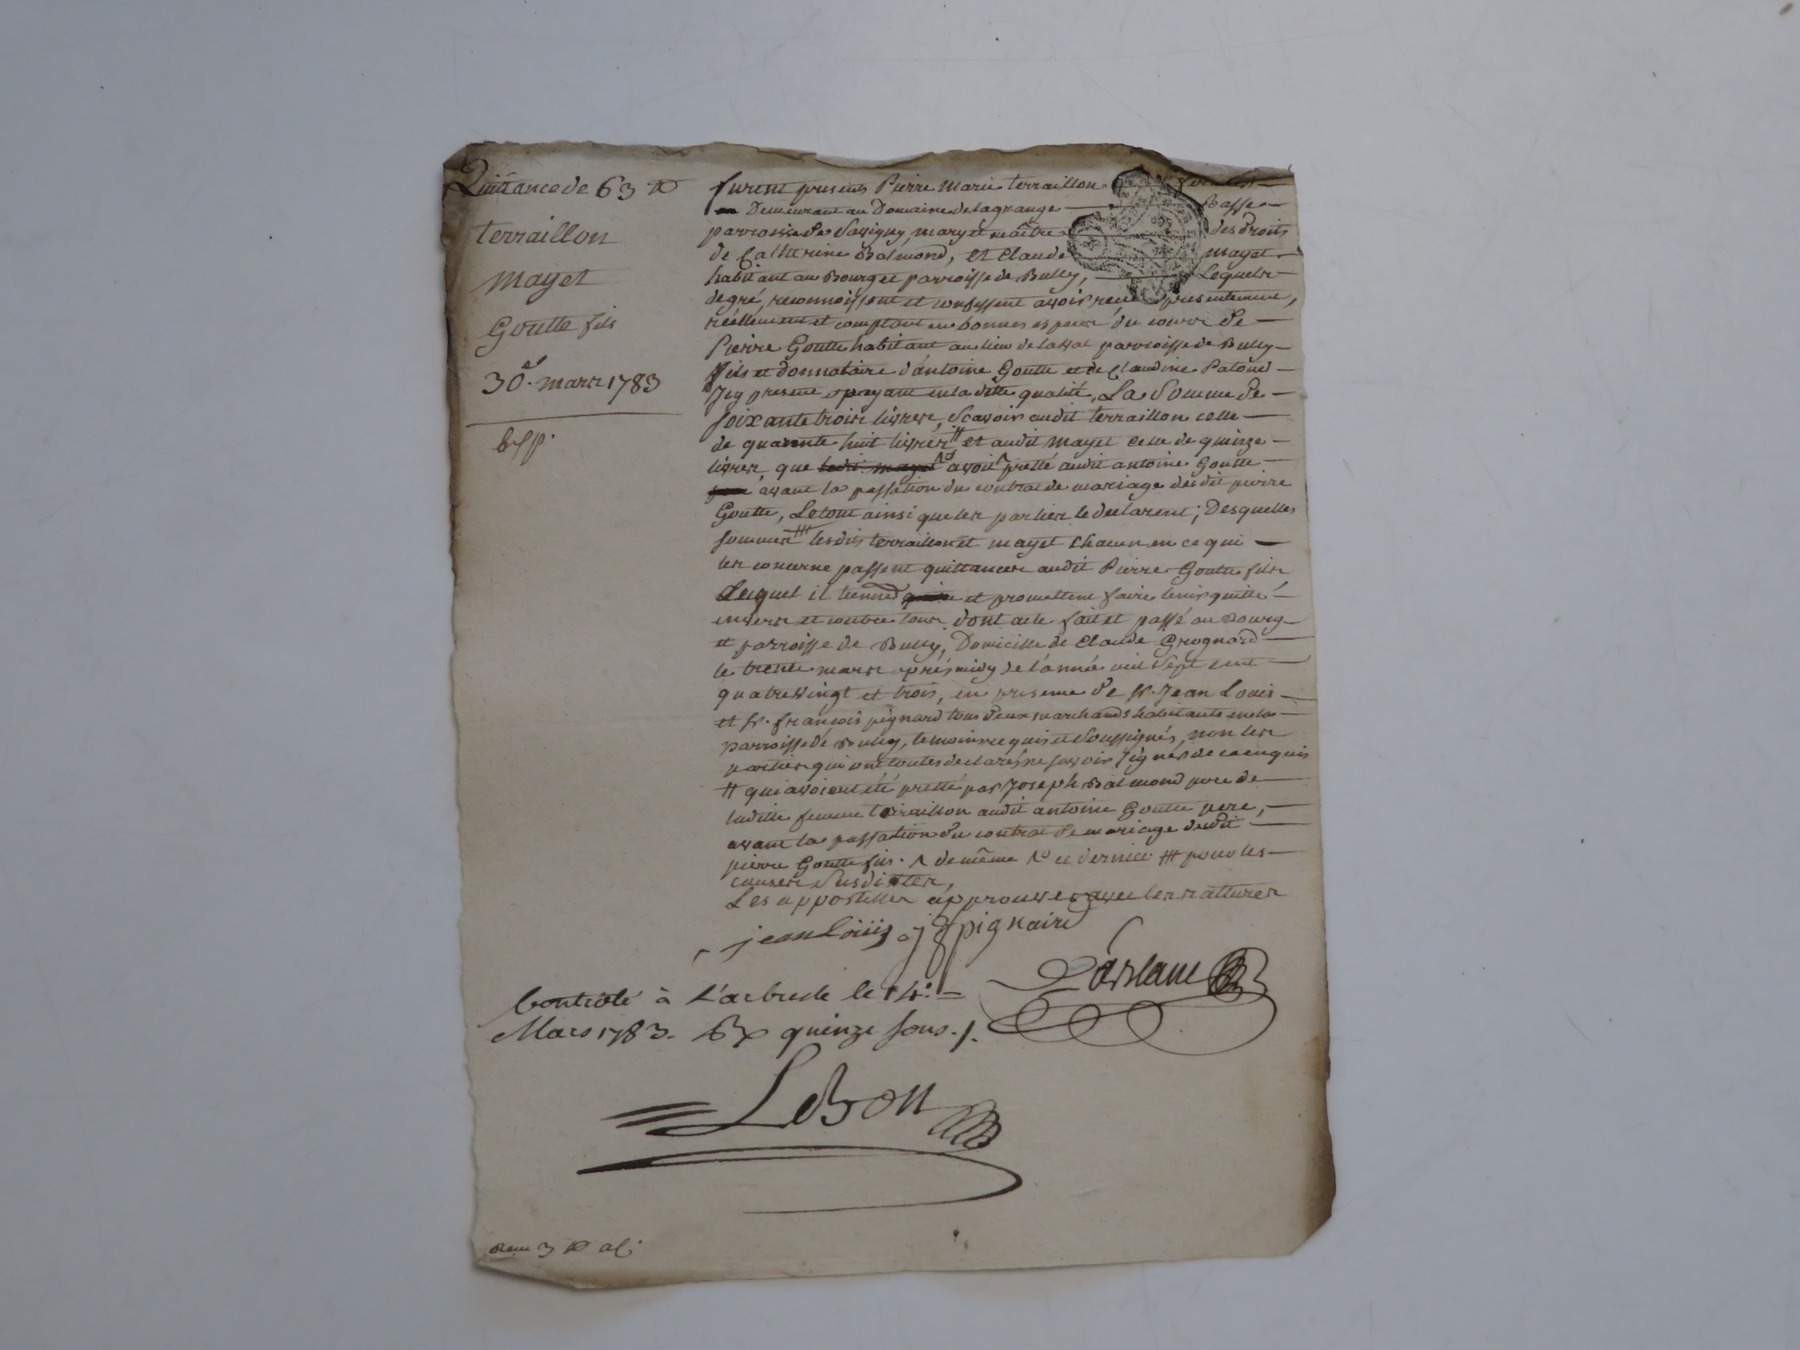 Quittance de 63 ₶
terraillon
mayet
Goutte fils
30.e mars 1783
Exp.
furent presents Pierre Marie terraillon
Demeurant au Domaine de lagrange Basse
parroisse de Savigny, mary et maître des droits
de Catherine Balmond, et Claude mayet
habitant au Bourg et parroisse de Bully, Lesquels
de gré, reconnoissent et confessent avoir réçu presentement,
réellement et comptant en bonnes especes du cours de
Pierre Goutte habitant au lieu de lassal parroisse de Bully
fils et donnataire d'antoine Goutte et de Claudine Patoud
Icy present et payant en la ditte qualité, La Somme de
soixante trois livres, Scavoir audit terraillon celle
de quarante huit livres # et audit mayet celle de quinze
livres, que avoit pretté audit antoine Goutte
avant la passation du contrat de mariage dudit pierre
Goutte, Le tout ainsi que les parties le déclarent; Desquelles
sommes ### lesdits terraillon et mayet chacun en ce qui
les concerne passent quittances audit Pierre Goutte fils
Lequel il tiennent et promettent faire tenir quitte
envers et contre tous. dont acte fait et passé au Bourg
et parroisse de Bully, Domicille de Claude Grognard
le trente mars après midy de l'année mil Sept cent
quatre vingt et trois, en presence de Sr. Jean Louis
et Sr. françois pignard tous deux marchands habitants en la
parroisse de Bully, temoins requis et Soussignés, non les
parties qui ont toutes declaré ne savoir Signer de ce enquis
# qui avoient été pretté par Joseph Balmond pere de
laditte femme terraillon audit antoine Goutte pere,
avant la passation du contrat de mariage dudit
pierre Goutte fils. ^ de même ce dernier ### pour les
causes Susdittes,
Les appostilles approuvées avec les rattures
jean loüis j f pignaird
Controlé à L'arbresle le 14.e
Mars 1783. Rx quinze sous.
Lebon